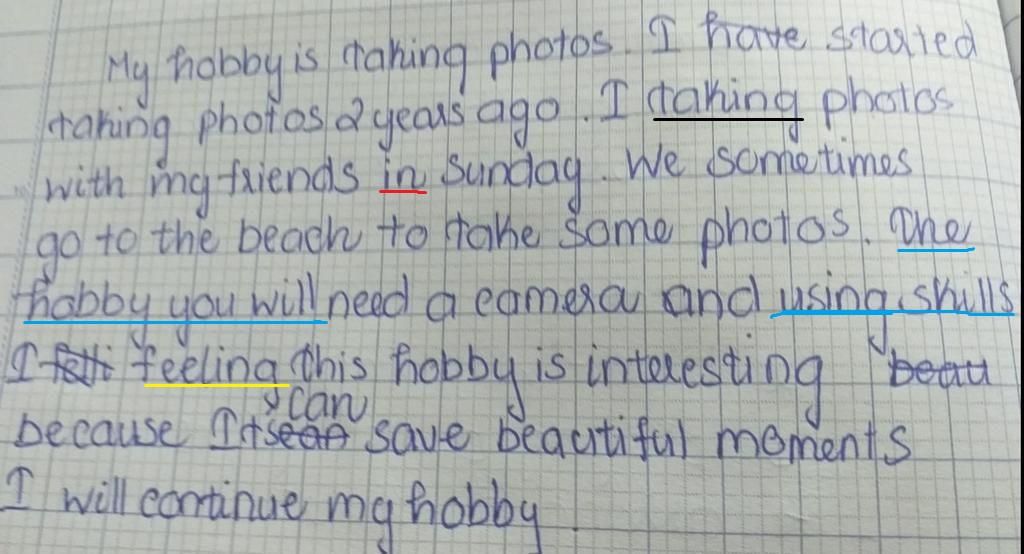 My hobby is taking photos. I have started
taking photos 2 years ago. I taking photos
with my friends in Sunday. We sometimes
go to the beach to take some photos. The
hobby you will need a camera and using skills
I feeling this hobby is interesting
can
because It save beautiful moments
I will continue my hobby.